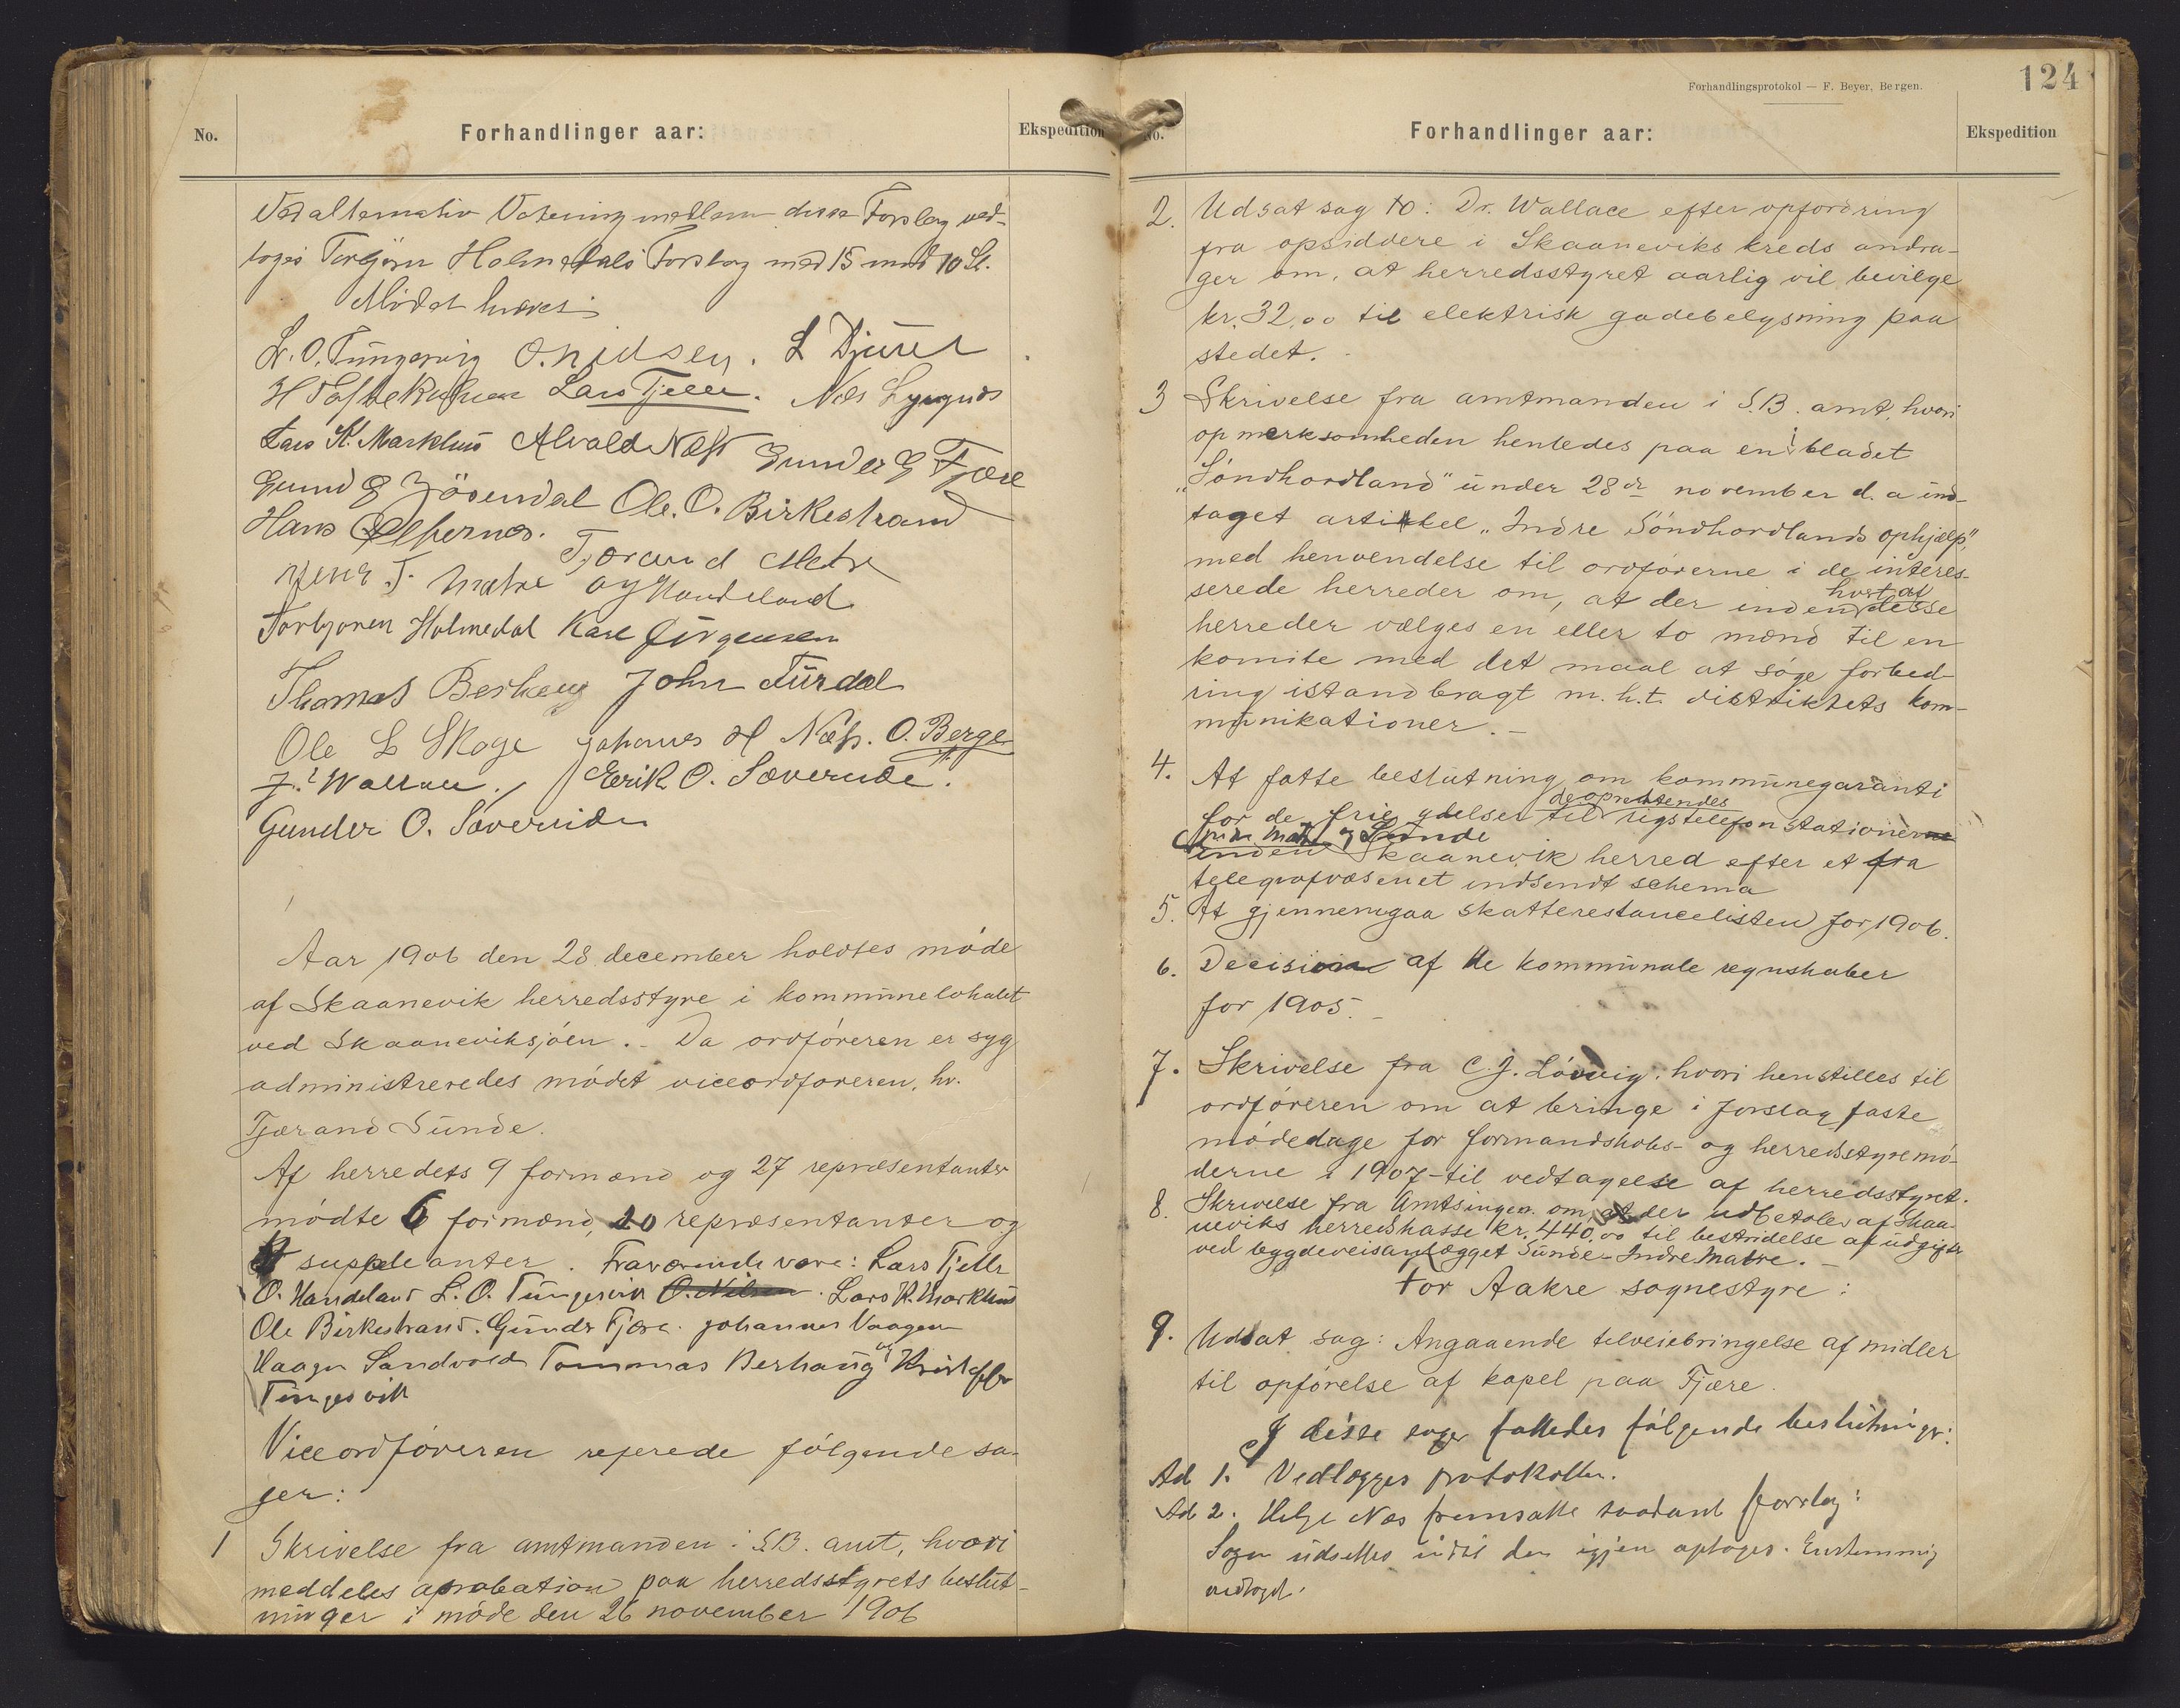 No.
Forhandlinger aar:
Ekspedition
Ved alternativ Votering mellem disse Forslag ved-
toges Torbjörn Holmedals Forslag med 15 mod 10 St.
Mödet hævet
L. O. Tungesvig O. Nielsen. L Djuvel
H Lars Tjelle. Nils
Lars K. Marklund Alvald Næss Gunder G Fjære
Gund G Ole. O. Birkestrand
Hans Tjærand
Jens T. Matre Handeland
Torbjoren Holmedal Karl Jörgensen
Thomas Berhaug John Furdal
Ole L Skoge Johannes H Næss. O. Berge
J. Wallace. Erik O. Sæverude.
Gunder O. Sæverude
Aar 1906 den 28 december holdtes möde
af Skaanevik herredsstyre i kommunelokalet
ved Skaaneviksjöen. - Da ordföreren er syg
administreredes mödet viceordföreren, hr.
Tjærand Sunde.
Af herredets 9 formænd og 27 repræsentanter
mödte 6 formænd, 20 repræsentanter og
suppleanter. Fraværende vare: Lars Tjelle
O. Handeland L. O. Tungesvik O. Nilsen. Lars K. Marklund
Ole Birkestrand. Gunder Fjære. Johannes Vaagen
Haagen Sandvold Tommas Berhaug og Kristoffer
Tungesvik
Viceordföreren refererede fölgende sa-
ger:
1 Skrivelse fra amtmanden i S.B. amt, hvori
meddeles aprobation paa herredsstyrets beslut-
ninger i möde den 26 november 1906
Forhandlingsprotokol — F. Beyer, Bergen.
124
No.
Forhandlinger aar:
Ekspedition
2. Udsat sag 10: Dr. Wallace efter opfordring
fra opsiddere i Skaaneviks kreds andra-
ger om, at herredsstyret aarlig vil bevilge
kr. 32,00 til elektrisk gadebelysning paa
stedet.
3 Skrivelse fra amtmanden i S.B. amt, hvori
opmerksomheden henledes paa en i bladet
„Söndhordland" under 28de november d. a ind-
taget artikkel „Indre Söndhordlands ophjælp",
med henvendelse til ordförerne i de interes-
serede herreder om, at der inden hvert af disse
herreder vælges en eller to mænd til en
komite med det maal at söge forbed-
ring istandbragt m. h. t. distriktets kom-
munikationer. -
4. At fatte beslutning om kommunegaranti
for de frie ydelser til de oprettendes rigstelefonstationerne
Indre Matre og Sunde
inden Skaanevik herred efter et fra
telegrafvæsenet indsendt schema
5. At gjennemgaa skatterestancelisten for 1906.
6. Decision af de kommunale regnskaber
for 1905. -
7. Skrivelse fra C. J. Lövvig, hvori henstilles til
ordföreren om at bringe i forslag faste
mödedage for formandskabs- og herredsstyremö-
derne i 1907 - til vedtagelse af herredsstyret.
8. Skrivelse fra Amtsingen. om, at der udbetales af Skaa-
neviks herredskasse kr. 440.00 til bestridelse af udgifter
ved bygdeveisanlægget Sunde - Indre Matre. -
For Aakre sognestyre:
9. Udsat sag: Angaaende tilveiebringelse af midler
til opförelse af kapel paa Fjære.
I disse sager fattedes fölgende beslutninger:
Ad 1. Vedlægges protokollen.
Ad 2. Helge Næs fremsatte saadant forslag:
Sagen udsettes indtil den igjen optages. Enstemmig
vedtaget.